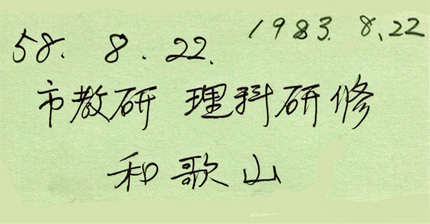 1983. 8.22
58. 8. 22.
市教研 理科研修
和歌山